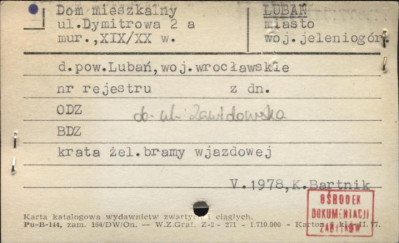 Dom mieszkalny
ul.Dymitrowa 2 a
mur.,XIX/XX w.
LUBAŃ
miasto
woj.jeleniogór
d.pow.Lubań,woj.wrocławskie
nr rejestru z dn.
ODZ
d. ul. Zawidowska
BDZ
krata żel.bramy wjazdowej
V.1978,K.Bartnik
OŚRODEK
DOKUMENTACJI
ZABYTKÓW
Karta katalogowa wydawnictw zwartych i ciągłych.
Pu-B-144, zam. 164/DW/On. — W.Z.Graf. Z-2 - 271 - 1.710.000 - Karton